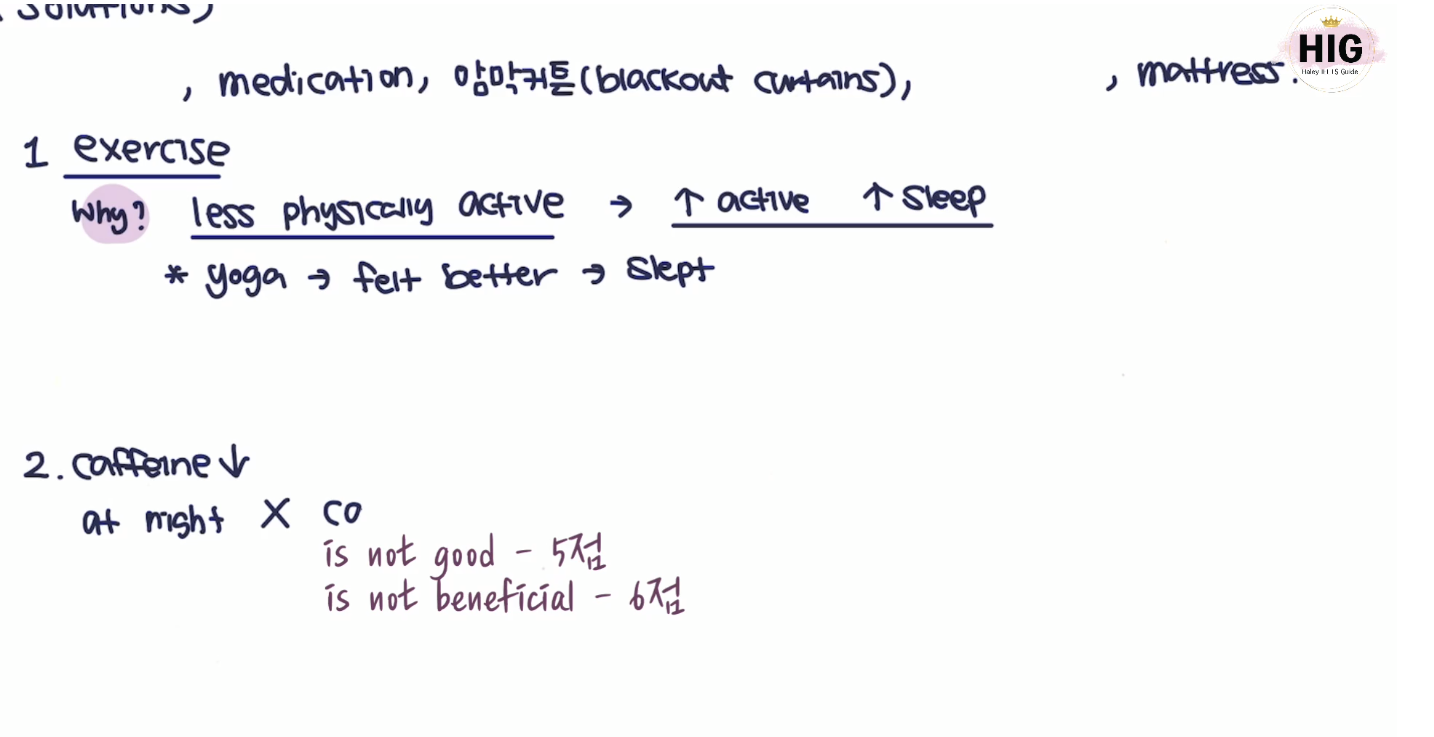 solutions)
HIG
Haley IELTS Guide
, medication, 암막커튼(blackout curtains),          , mattress.
1 exercise
Why? less physically active → ↑ active ↑ sleep
* yoga → felt better → slept
2. caffeine ↓
at night X co
is not good - 5점
is not beneficial - 6점